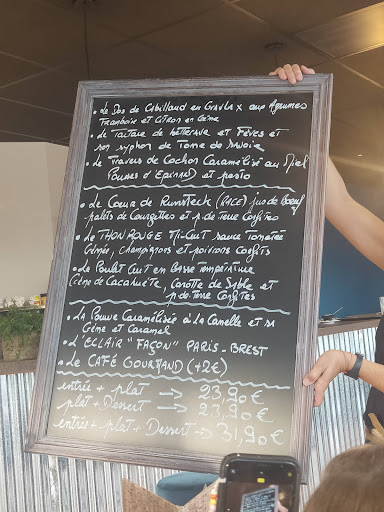 • Le Dos de Cabillaud en Gravlax aux Agrumes
Framboise et Citron en Crème
• Le Tartare de betterave et Fèves et
son syphon de Tome de Savoie
• Le Travers de Cochon Caramélisé au Miel
Pousses d'Epinard et pesto
• Le Coeur de Rumsteck (RACE) jus de Boeuf
palets de Courgettes et p. de Terre Confites
• Le THON ROUGE Mi-Cuit sauce Tomatée
Crémée, champignons et poivrons Confits
• Le Poulet Cuit en Basse Température
Crème de Cacahuète, Carotte de Sable et
p. de Terre Confites
• La Poire Caramélisée à La Canelle et sa
Crème et Caramel
• L'ECLAIR "FAÇON" PARIS-BREST
• Le CAFÉ GOURMAND (+2€)
entrée + plat → 23,90€
plat + Dessert → 23,90€
entrée + plat + Dessert → 31,90€